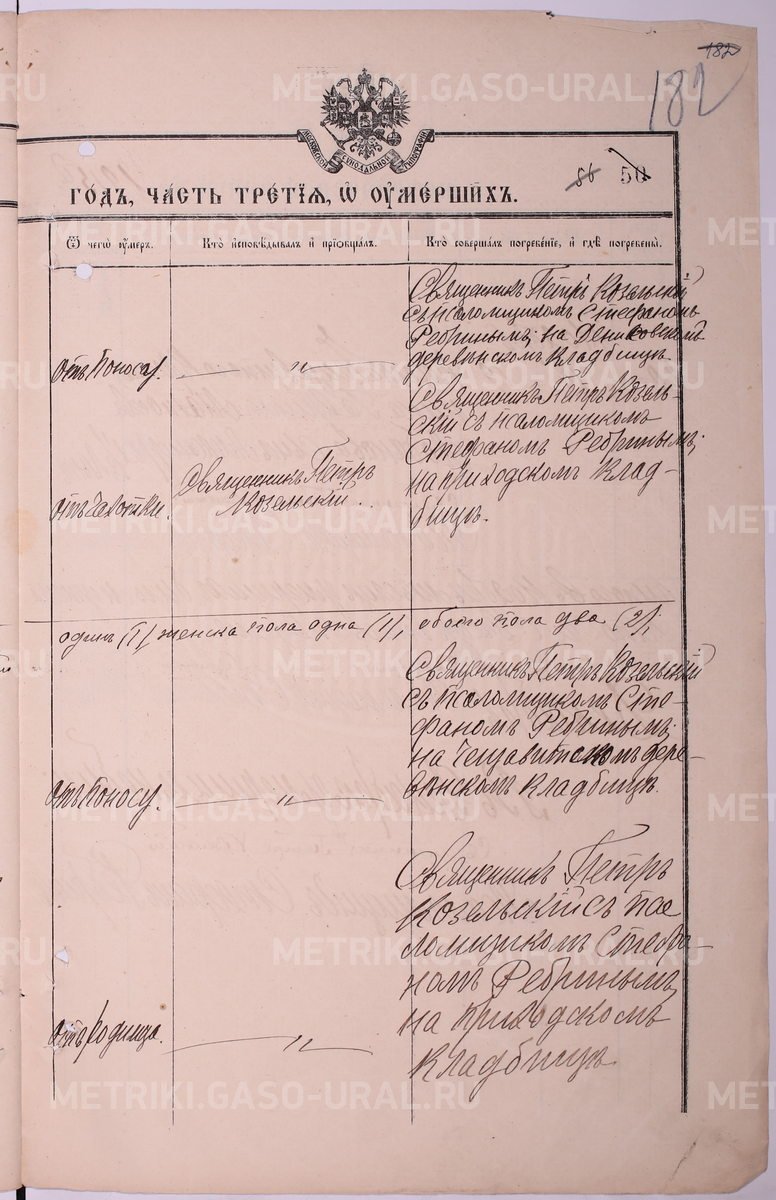 182
182
METRIKI.GASO-URAL.RU
МОСКОВСКОЙ СѴНОДАЛЬНОЙ ТИПОГРАФІИ
56 50
ГОДЪ, ЧАСТЬ ТРЕТІЯ, Ѡ ОУМЕРШИХЪ.
Ѿ чегѡ оумеръ.
Кто исповѣдывалъ и пріобщалъ.
Кто совершалъ погребеніе, и гдѣ погребены.
отъ поноса.
— " —
Священникъ Петръ Козельскій
съ псаломщикомъ Стефаномъ
Ребринымъ; на
деревенскомъ кладбищѣ.
отъ чахотки.
Священникъ Петръ
Козельскій.
Священникъ Петръ Козель-
скій съ псаломщикомъ
Стефаномъ Ребринымъ;
на приходскомъ клад-
бищѣ.
одинъ (1) женска пола одна (1), обоего пола два (2);
отъ поносу.
— " —
Священникъ Петръ Козельскій
съ псаломщикомъ Сте-
фаномъ Ребринымъ;
на дере-
венскомъ кладбищѣ.
отъ родимца.
— " —
Священникъ Петръ
Козельскій съ пса
ломщикомъ Стефа-
номъ Ребринымъ,
на приходскомъ
кладбищѣ.
METRIKI.GASO-URAL.RU